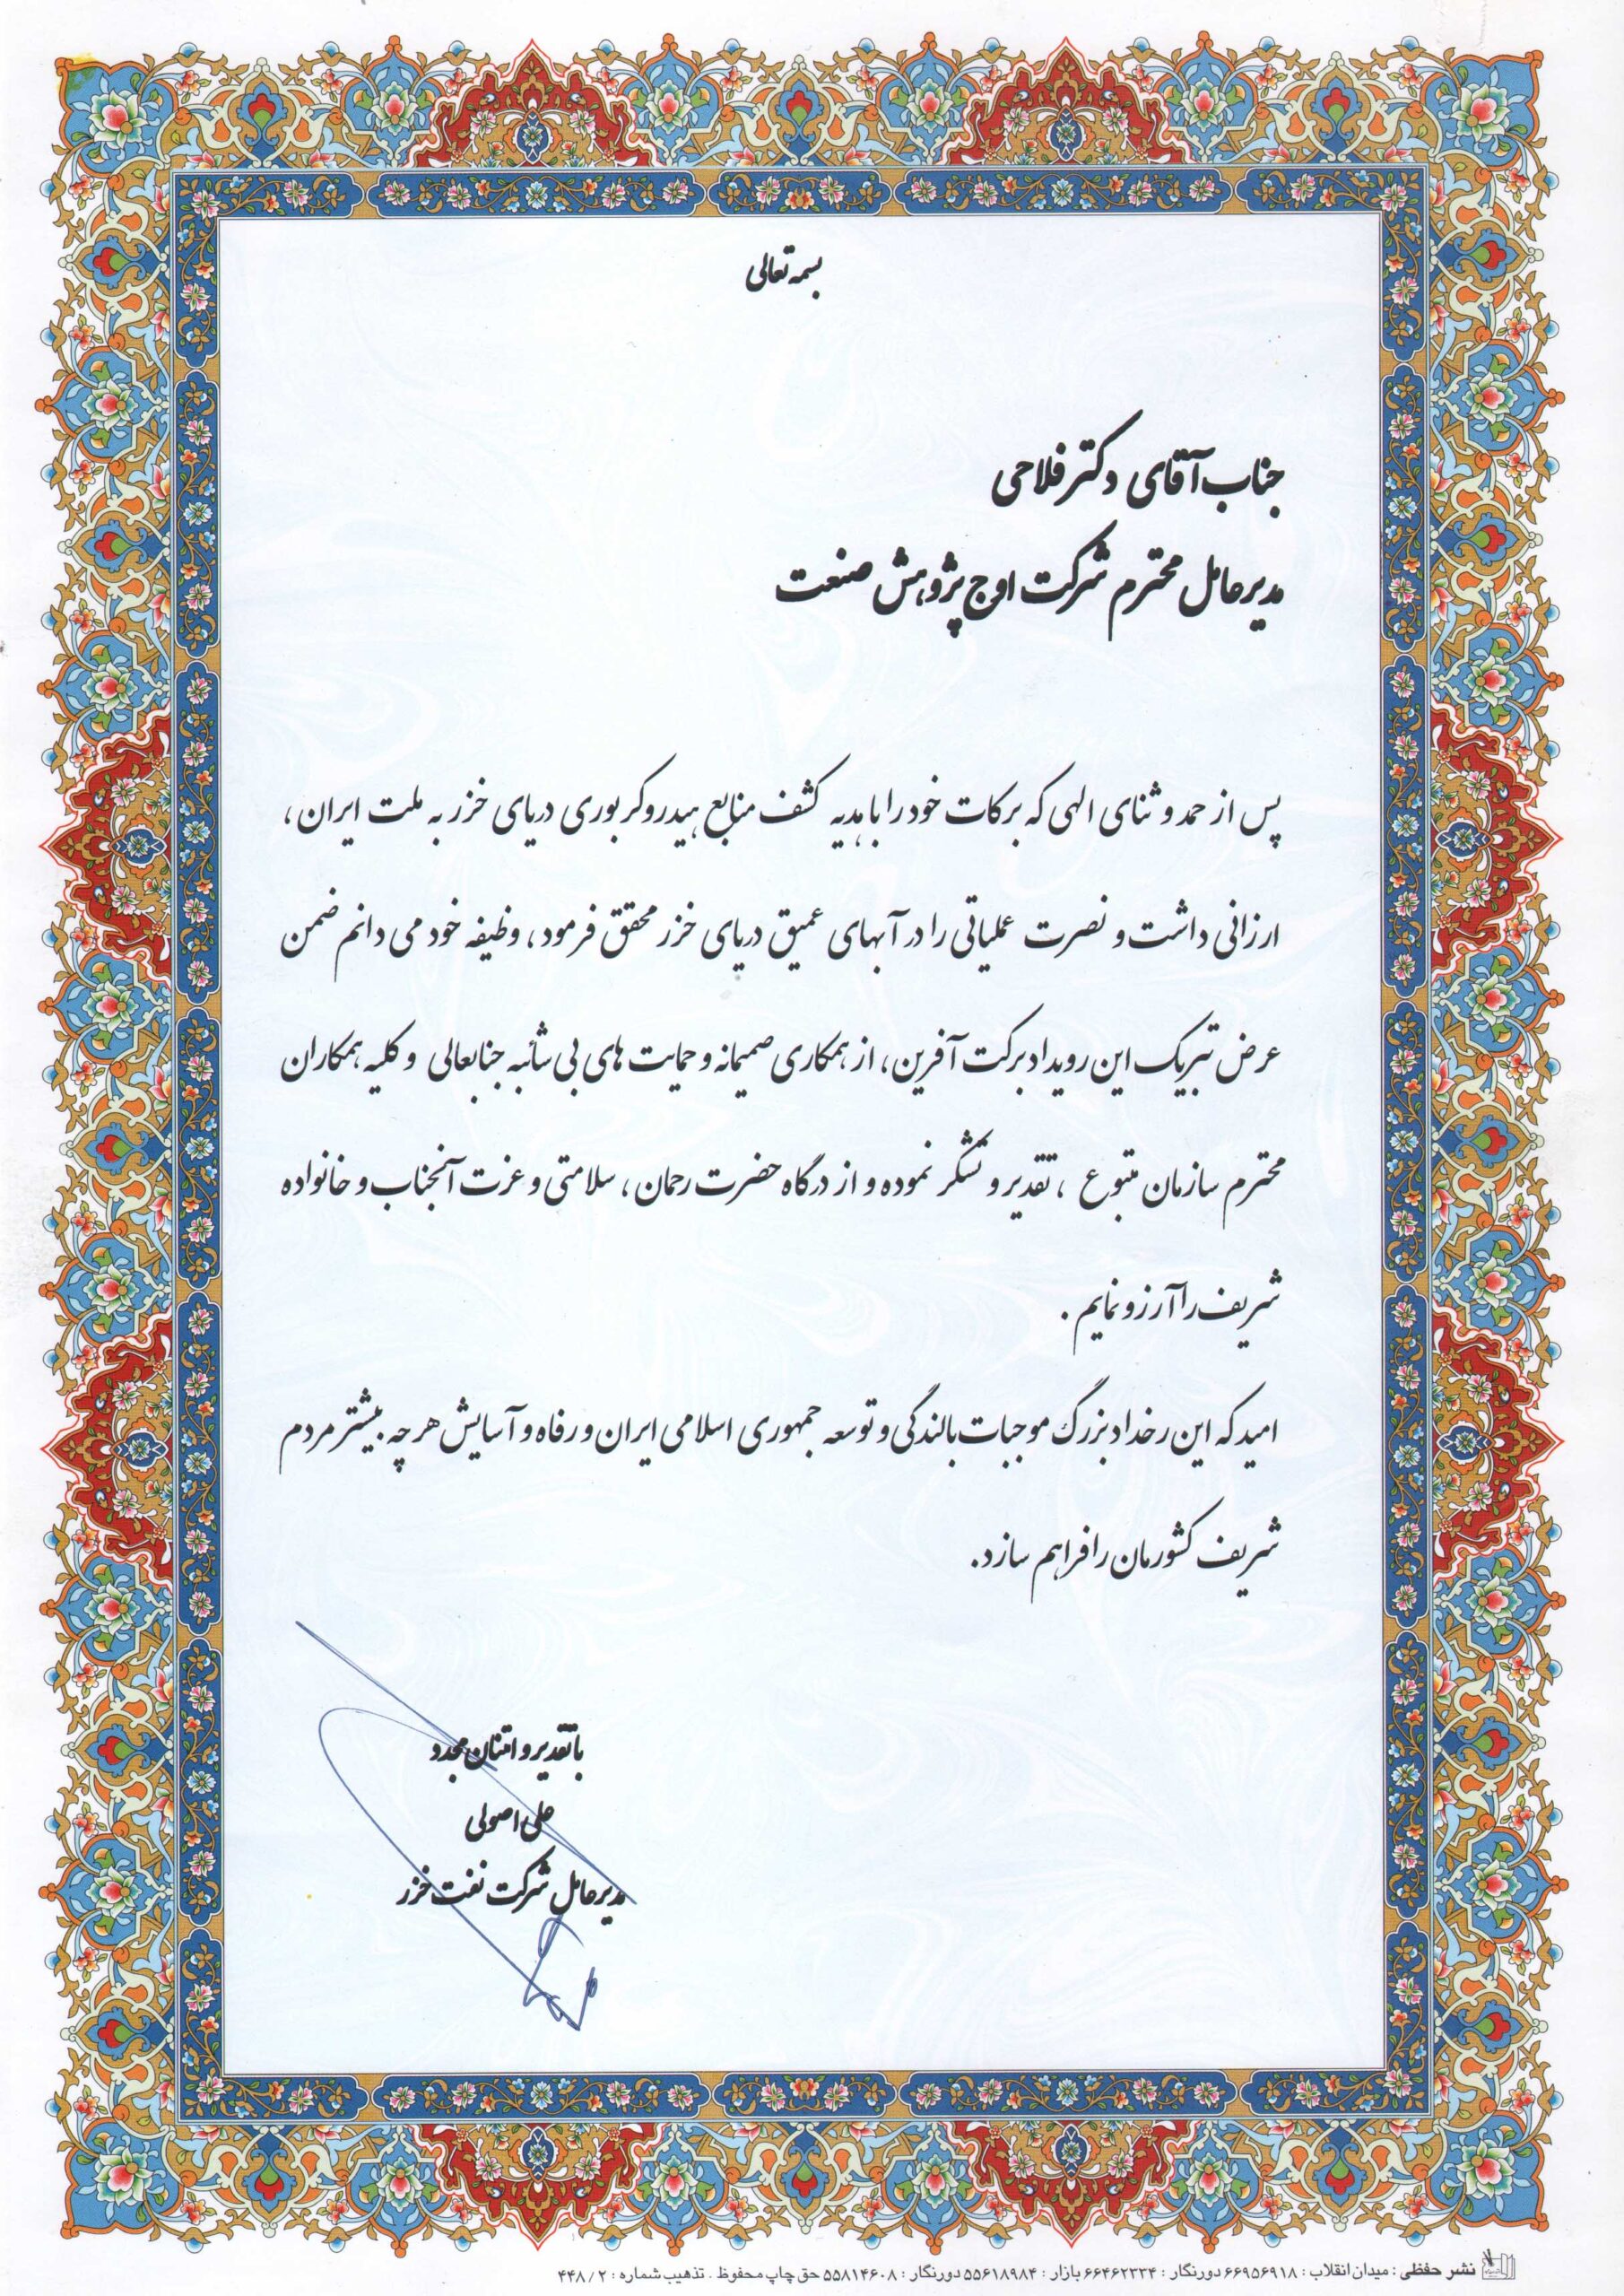 بسمه تعالی
جناب آقای دکتر فلاحی
مدیرعامل محترم شرکت اوج پژوهش صنعت
پس از حمد و ثنای الهی که برکات خود را با هدیه کشف منابع هیدروکربوری دریای خزر به ملت ایران ،
ارزانی داشت و نصرت عملیاتی را در آبهای عمیق دریای خزر محقق فرمود ، وظیفه خود می دانم ضمن
عرض تبریک این رویداد برکت آفرین ، از همکاری صمیمانه و حمایت های بی شائبه جنابعالی و کلیه همکاران
محترم سازمان متبوع ، تقدیر و تشکر نموده و از درگاه حضرت رحمان ، سلامتی و عزت آنجناب و خانواده
شریف را آرزو نمایم .
امید که این رخداد بزرگ موجبات بالندگی و توسعه جمهوری اسلامی ایران و رفاه و آسایش هر چه بیشتر مردم
شریف کشورمان را فراهم سازد.
با تقدیر و امتنان مجدد
علی اصولی
مدیرعامل شرکت نفت خزر
نشر حفظی : میدان انقلاب : ۶۶۹۵۶۹۱۸ دورنگار : ۶۶۴۶۲۳۳۴ بازار : ۵۵۶۱۸۹۸۴ دورنگار : ۵۵۸۱۴۶۰۸ حق چاپ محفوظ . تذهیب شماره : ۴۴۸/۲